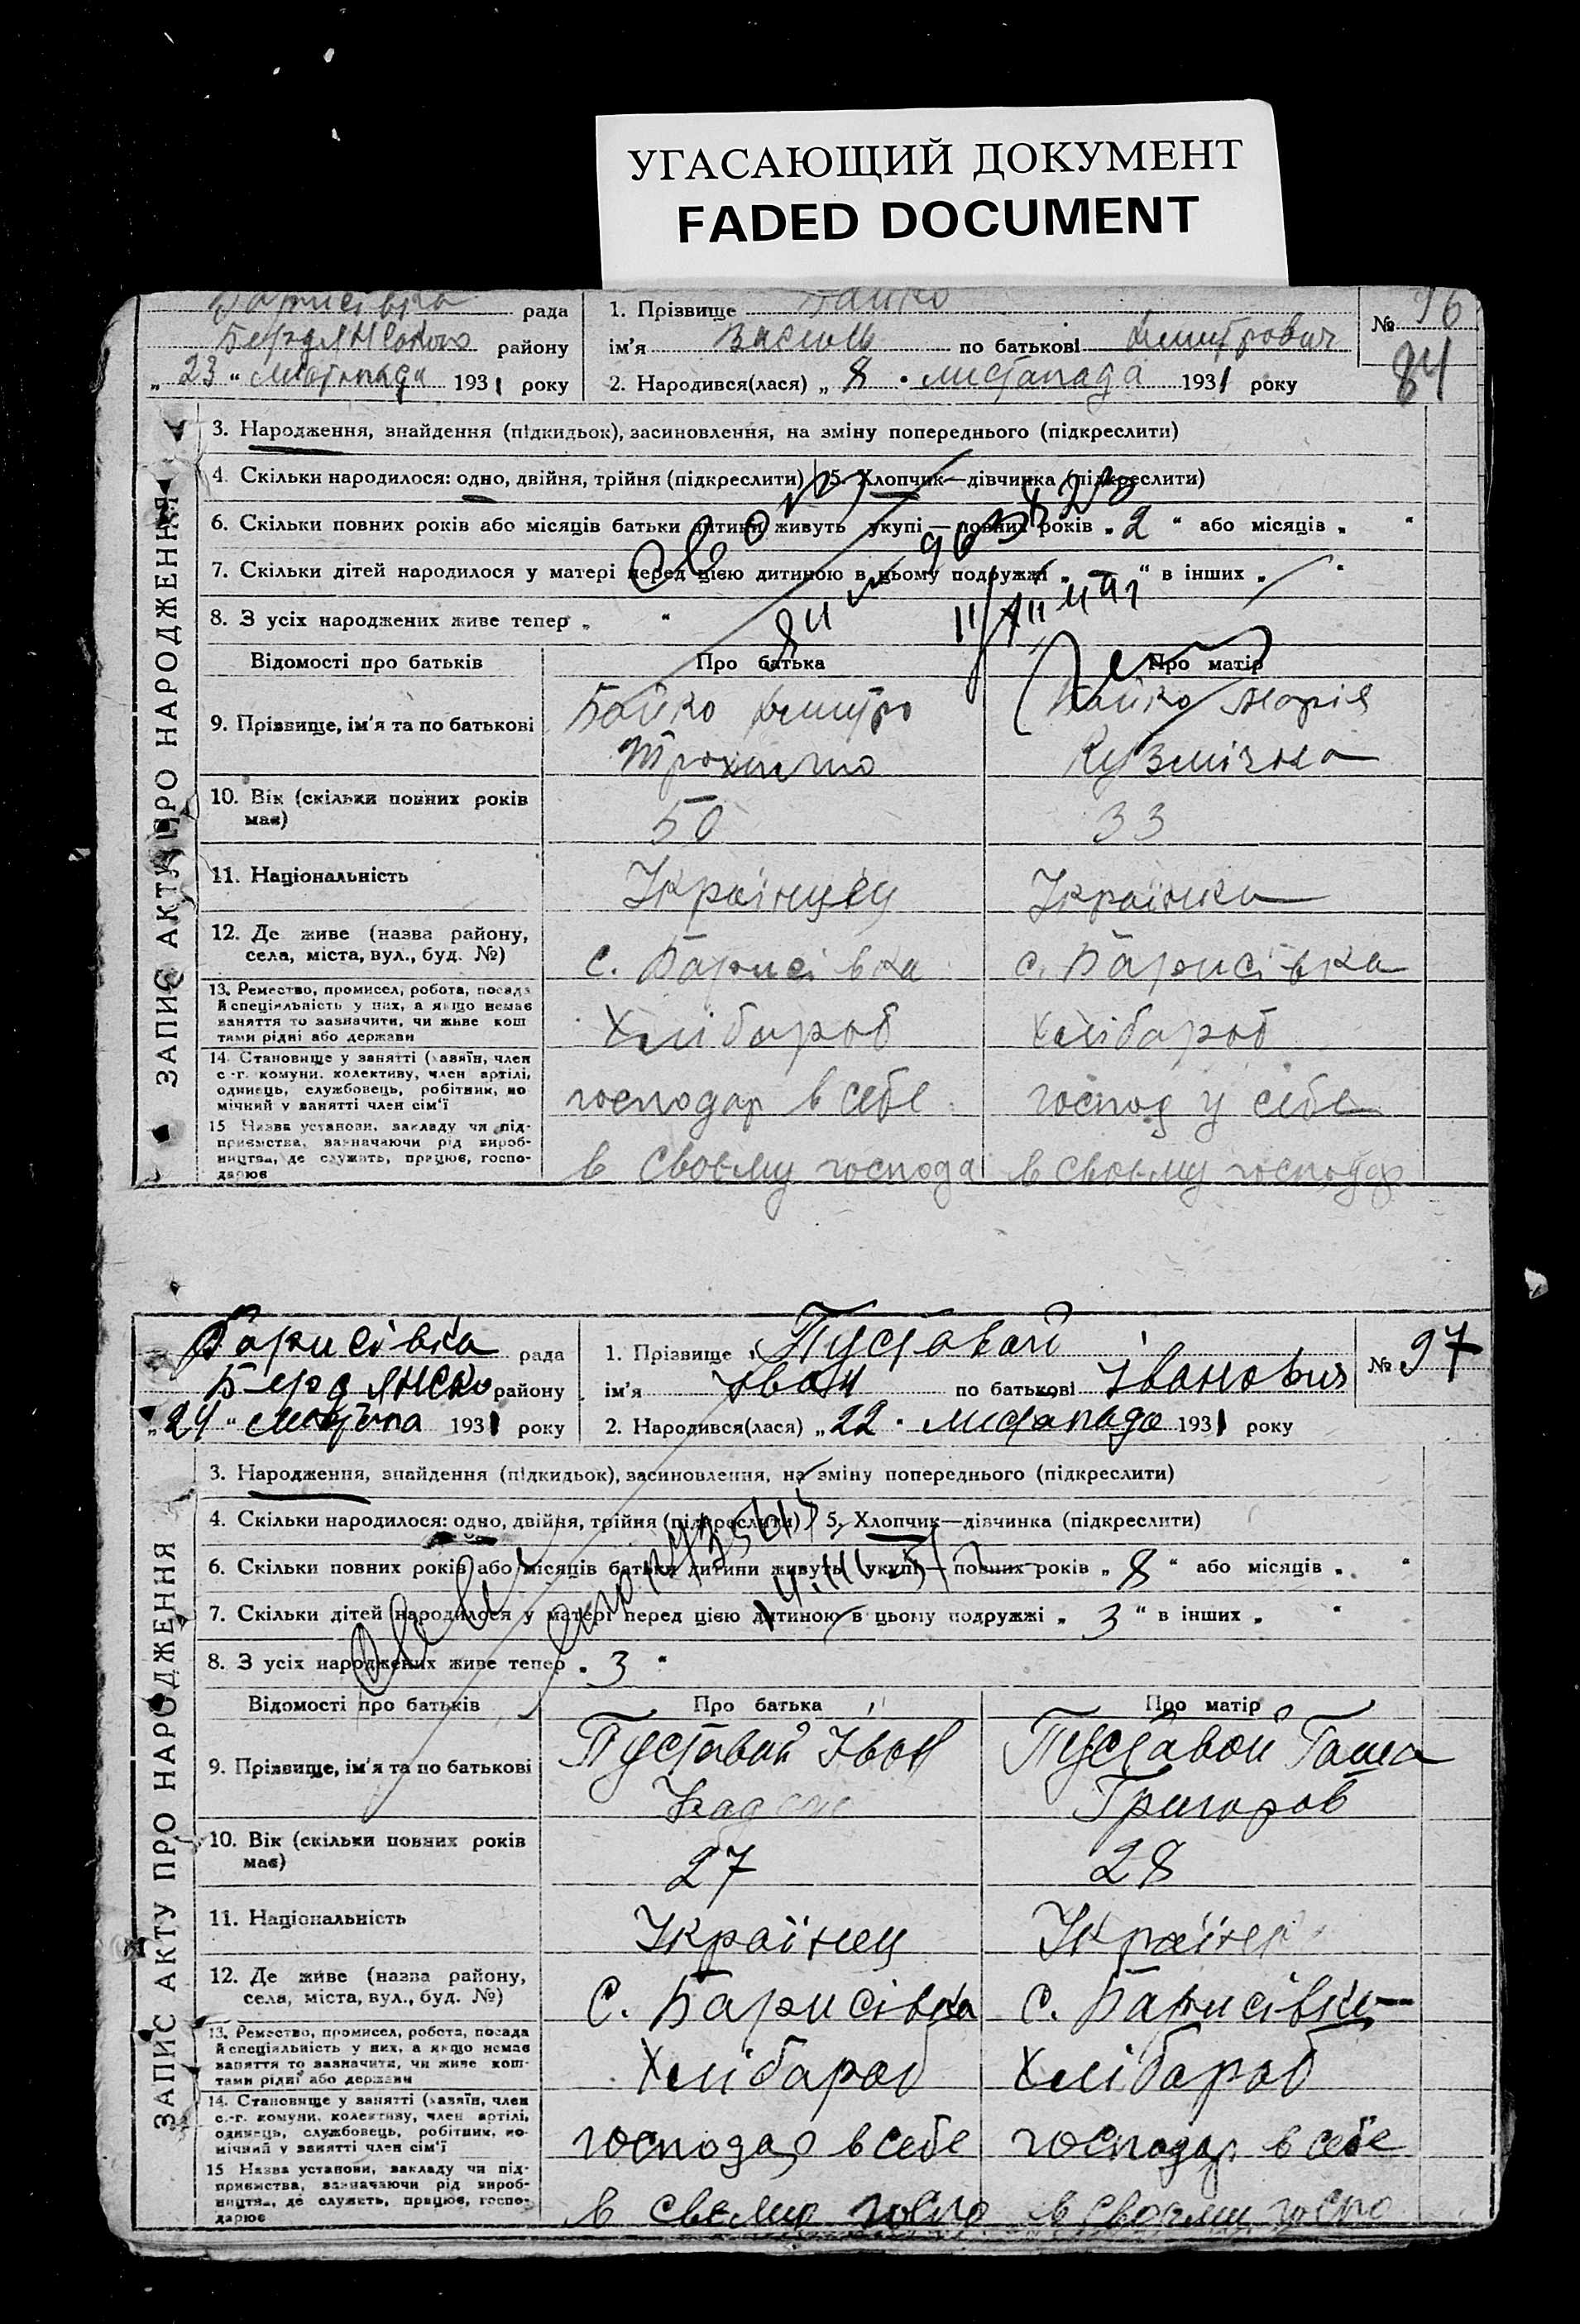 УГАСАЮЩИЙ ДОКУМЕНТ
FADED DOCUMENT
Барисівка рада
Бердянского району
„ 23 “ листапада 1931 року
1. Прізвище Байко
ім'я Василь по батькові Дмитрович
2. Народився(лася) „ 8 “ листапада 1931 року
№ 96
84
ЗАПИС АКТУ ПРО НАРОДЖЕННЯ
3. Народження, знайдення (підкидьок), засиновлення, на зміну попереднього (підкреслити)
4. Скільки народилося: одно, двійня, трійня (підкреслити) 5. Хлопчик—дівчинка (підкреслити)
6. Скільки повних років або місяців батьки дитини живуть укупі — повних років „ 2 “ або місяців „ “
7. Скільки дітей народилося у матері перед цією дитиною в цьому подружжі „ — “ в інших „ “
8. З усіх народжених живе тепер „ “
Відомості про батьків Про батька Про матір
9. Прізвище, ім'я та по батькові
Байко Дмитро
Байко Марія
Кузмічна
10. Вік (скільки повних років має) 50 33
11. Національність Українцец Українка
12. Де живе (назва району, села, міста, вул., буд. №) с. Барисівка с. Барисівка
13. Ремество, промисел, робота, посада й спеціяльність у них, а якщо немає заняття то зазначити, чи живе коштами рідні або держави Хлібароб Хлібароб
14. Становище у занятті (хазяїн, член с.-г. комуни, колективу, член артілі, одинець, службовець, робітник, помічний у занятті член сім'ї господар в себе господ у себе
15 Назва установи, закладу чи підприємства, зазначаючи рід виробництва, де служить, працює, господарює в своєму господа в своєму господар
Барисівка рада
Бердянско району
„ 24 “ листапа 1931 року
1. Прізвище Пуставай
ім'я Іван по батькові Іванович
2. Народився(лася) „ 22 “ листапада 1931 року
№ 97
ЗАПИС АКТУ ПРО НАРОДЖЕННЯ
3. Народження, знайдення (підкидьок), засиновлення, на зміну попереднього (підкреслити)
4. Скільки народилося: одно, двійня, трійня (підкреслити) 5. Хлопчик—дівчинка (підкреслити)
6. Скільки повних років або місяців батьки дитини живуть укупі — повних років „ 8 “ або місяців „ “
7. Скільки дітей народилося у матері перед цією дитиною в цьому подружжі „ 3 “ в інших „ “
8. З усіх народжених живе тепер „ 3 “
Відомості про батьків Про батька Про матір
9. Прізвище, ім'я та по батькові
Пуставай Іван
Пуставой Гаша
Григоров
10. Вік (скільки повних років має) 27 28
11. Національність Українец Україн
12. Де живе (назва району, села, міста, вул., буд. №) С. Барисівка С. Барисівка
13. Ремество, промисел, робота, посада й спеціяльність у них, а якщо немає заняття то зазначити, чи живе коштами рідні або держави Хлібароб Хлібароб
14. Становище у занятті (хазяїн, член с.-г. комуни, колективу, член артілі, одинець, службовець, робітник, помічний у занятті член сім'ї господар в себе господар в себе
15 Назва установи, закладу чи підприємства, зазначаючи рід виробництва, де служить, працює, господарює в свєму госпо в своєму госпо